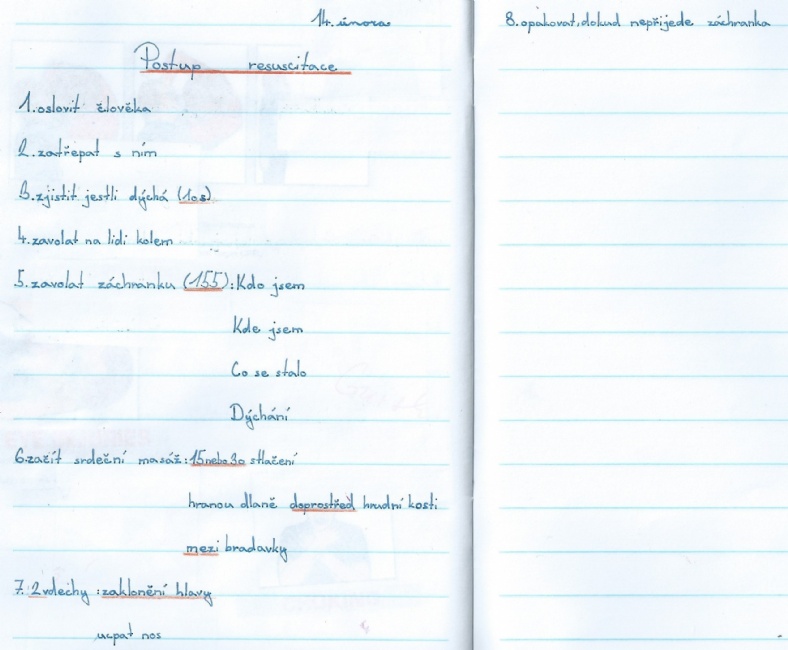 14. února
Postup resuscitace
1. oslovit člověka
2. zatřepat s ním
3. zjistit jestli dýchá (10s)
4. zavolat na lidi kolem
5. zavolat záchranku (155): Kdo jsem
Kde jsem
Co se stalo
Dýchání
6. začít srdeční masáž: 15 nebo 30 stlačení
hranou dlaně doprostřed hrudní kosti
mezi bradavky
7. 2 vdechy: zaklonění hlavy
ucpat nos
8. opakovat, dokud nepřijede záchranka